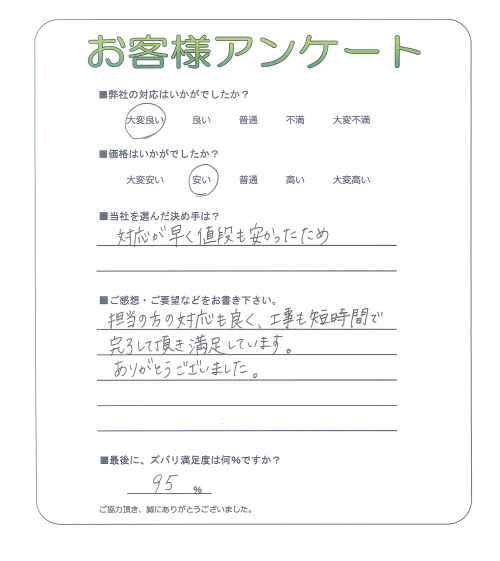 お客様アンケート
■弊社の対応はいかがでしたか？
大変良い 良い 普通 不満 大変不満
■価格はいかがでしたか？
大変安い 安い 普通 高い 大変高い
■当社を選んだ決め手は？
対応が早く値段も安かったため
■ご感想・ご要望などをお書き下さい。
担当の方の対応も良く、工事も短時間で
完了して頂き満足しています。
ありがとうございました。
■最後に、ズバリ満足度は何％ですか？
95 %
ご協力頂き、誠にありがとうございました。